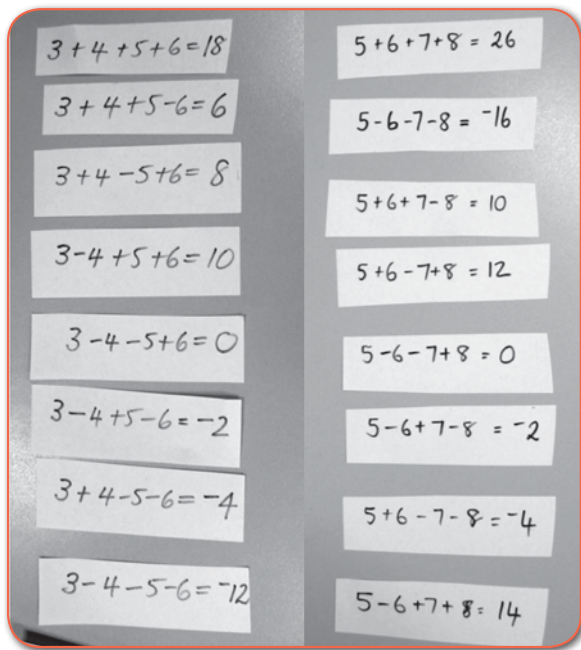 3 + 4 + 5 + 6 = 18
3 + 4 + 5 - 6 = 6
3 + 4 - 5 + 6 = 8
3 - 4 + 5 + 6 = 10
3 - 4 - 5 + 6 = 0
3 - 4 + 5 - 6 = -2
3 + 4 - 5 - 6 = -4
3 - 4 - 5 - 6 = ⁻12
5 + 6 + 7 + 8 = 26
5 - 6 - 7 - 8 = ⁻16
5 + 6 + 7 - 8 = 10
5 + 6 - 7 + 8 = 12
5 - 6 - 7 + 8 = 0
5 - 6 + 7 - 8 = ⁻2
5 + 6 - 7 - 8 = ⁻4
5 - 6 + 7 + 8 = 14